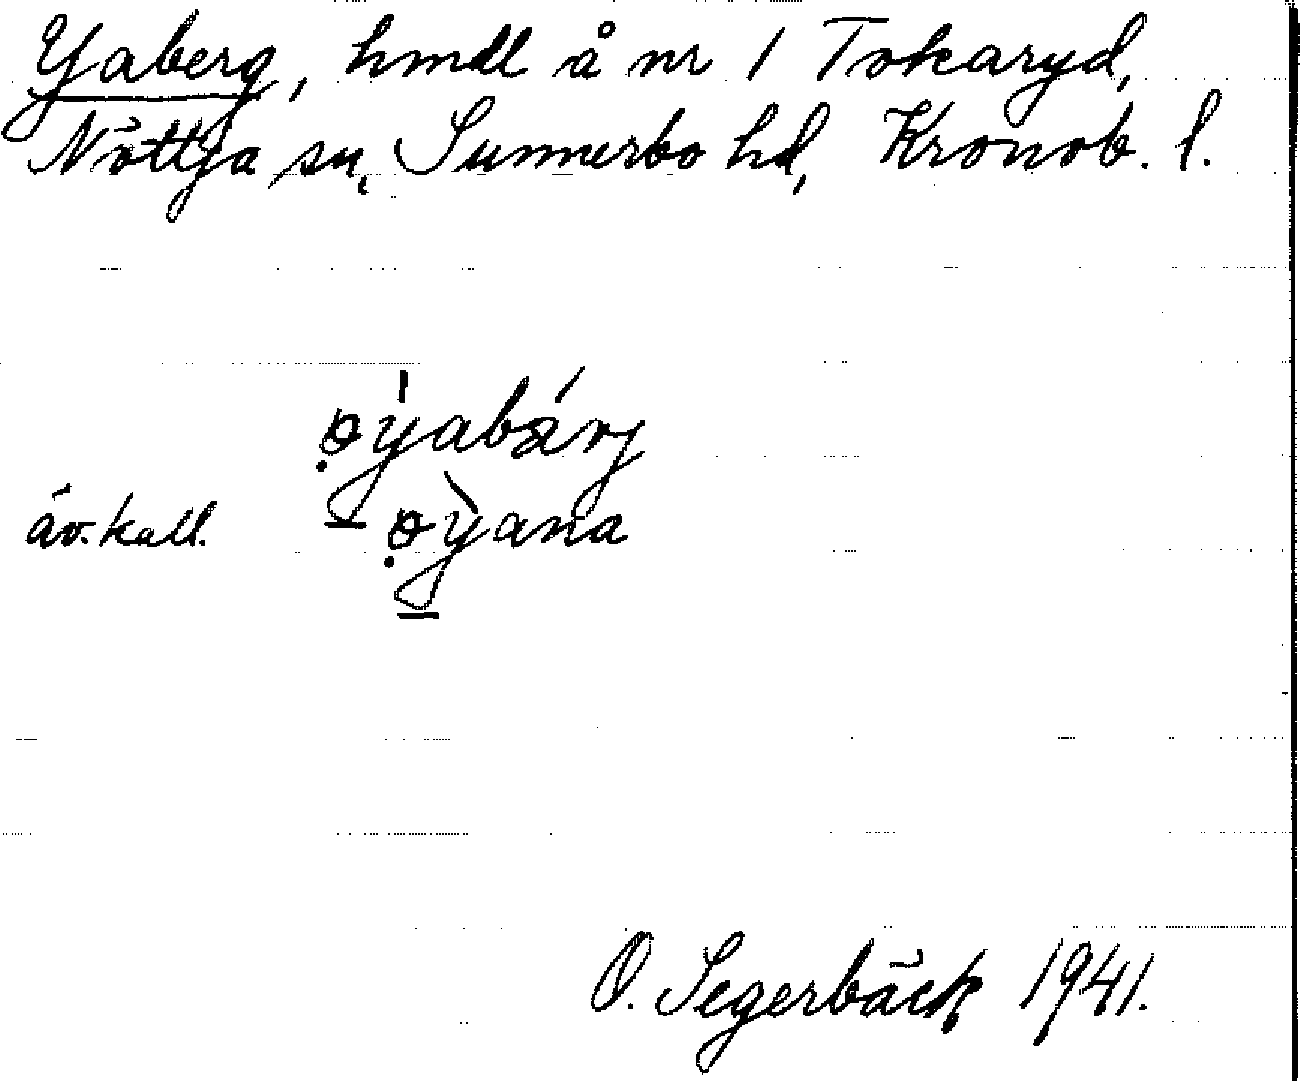 Yaberg, hmdl å nr 1 Tokaryd,
Nöttja sn, Sunnerbo hd, Kronob. l.
ýabærj
äv. kall. ỳana
O. Segerbäck 1941.